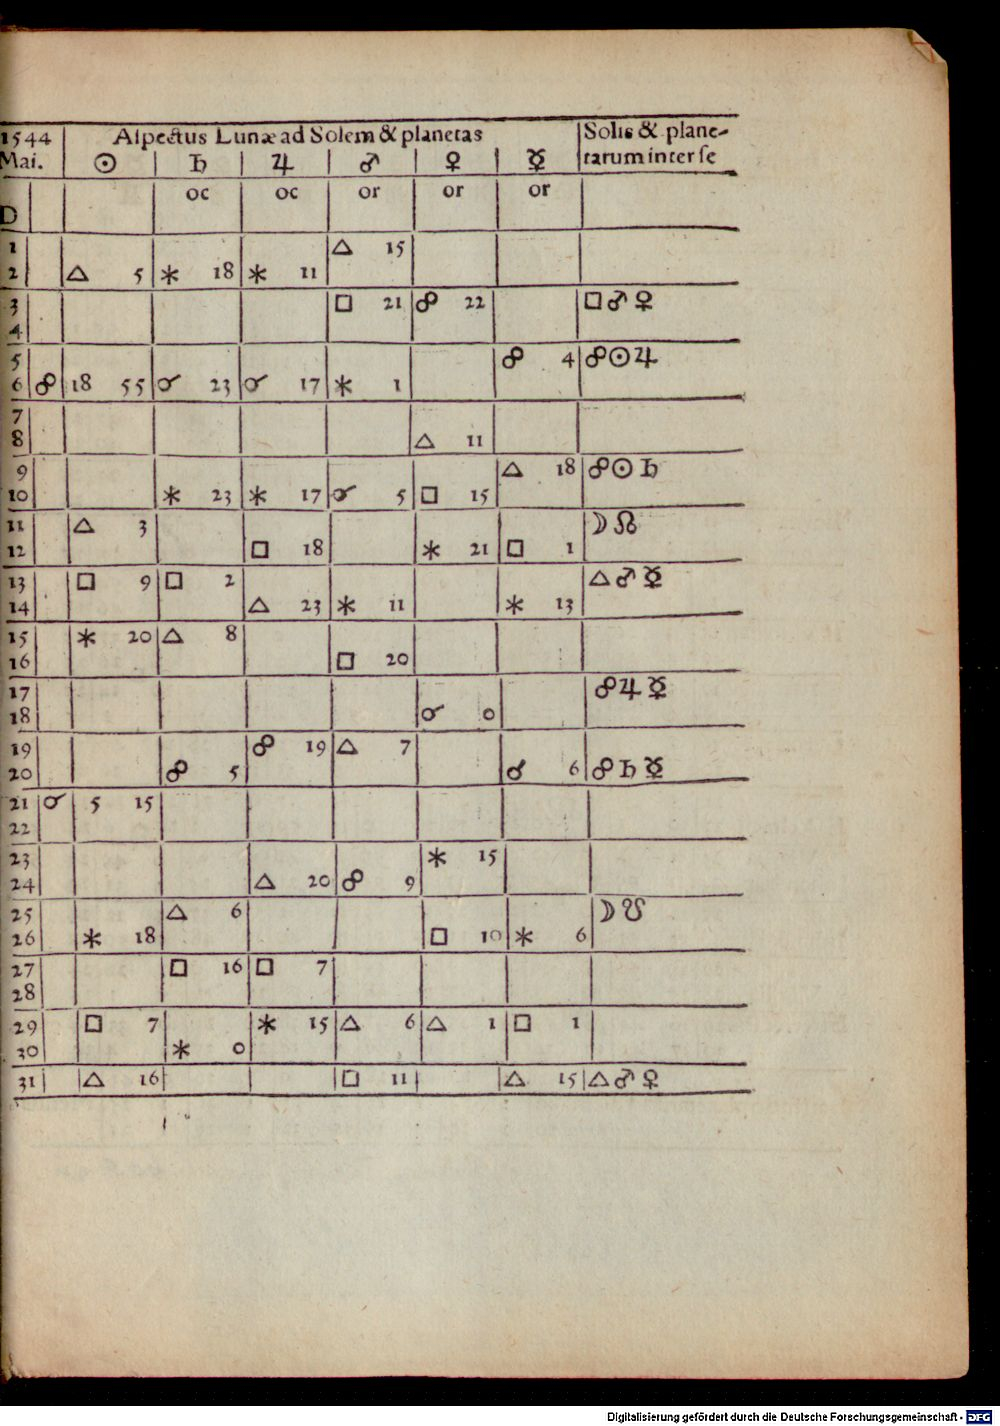 1544 Aspectus Lunæ ad Solem & planetas Solis & plane-
Mai. ☉ ♄ ♃ ♂ ♀ ☿ tarum inter se
D oc oc or or or
1 △ 15
2 △ 5 ⚹ 18 ⚹ 11
3 □ 21 ☍ 22 □ ♂ ♀
4
5 ☍ 4 ☍ ☉ ♃
6 ☍ 18 55 ☌ 23 ☌ 17 ⚹ 1
7
8 △ 11
9 △ 18 ☍ ☉ ♄
10 ⚹ 23 ⚹ 17 ☌ 5 □ 15
11 △ 3 ☽ ☊
12 □ 18 ⚹ 21 □ 1
13 □ 9 □ 2 △ ♂ ☿
14 △ 23 ⚹ 11 ⚹ 13
15 ⚹ 20 △ 8
16 □ 20
17 ☍ ♃ ☿
18 ☌ 0
19 ☍ 19 △ 7
20 ☍ 5 ☌ 6 ☍ ♄ ☿
21 ☌ 5 15
22
23 ⚹ 15
24 △ 20 ☍ 9
25 △ 6 ☽ ☋
26 ⚹ 18 □ 10 ⚹ 6
27 □ 16 □ 7
28
29 □ 7 ⚹ 15 △ 6 △ 1 □ 1
30 ⚹ 0
31 △ 16 □ 11 △ 15 △ ♂ ♀
Digitalisierung gefördert durch die Deutsche Forschungsgemeinschaft - DFG